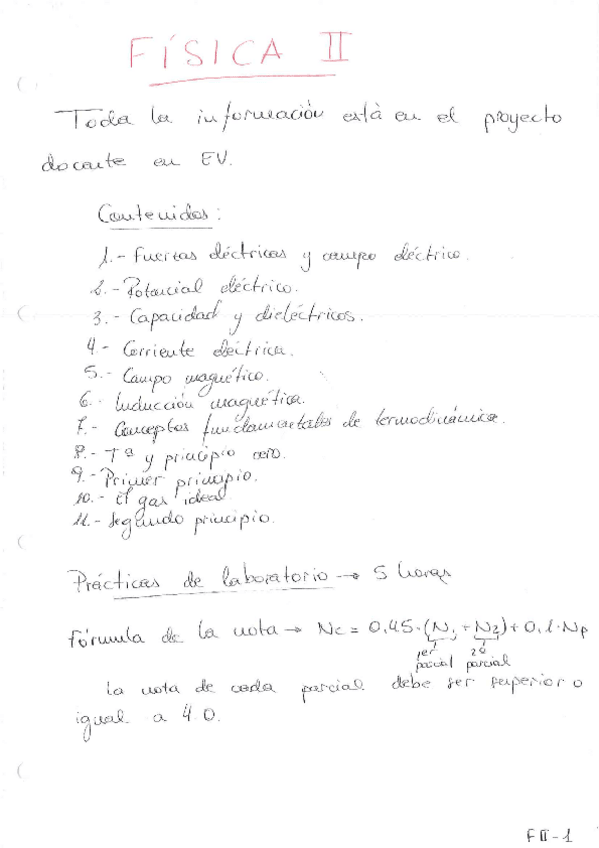 FÍSICA II
Toda la información está en el proyecto
docente en EV.
Contenidos:
1.- Fuerzas eléctricas y campo eléctrico.
2.- Potencial eléctrico.
3.- Capacidad y dieléctricos.
4.- Corriente eléctrica.
5.- Campo magnético.
6.- Inducción magnética.
7.- Conceptos fundamentales de termodinámica.
8.- Tª y principio cero.
9.- Primer principio.
10.- El gas ideal
11.- Segundo principio.
Prácticas de laboratorio → 5 horas
Fórmula de la nota → Nc = 0,45·(N1 + N2) + 0,1·Np
1er parcial 2º parcial
La nota de cada parcial debe ser superior o
igual a 4.0.
FII-1